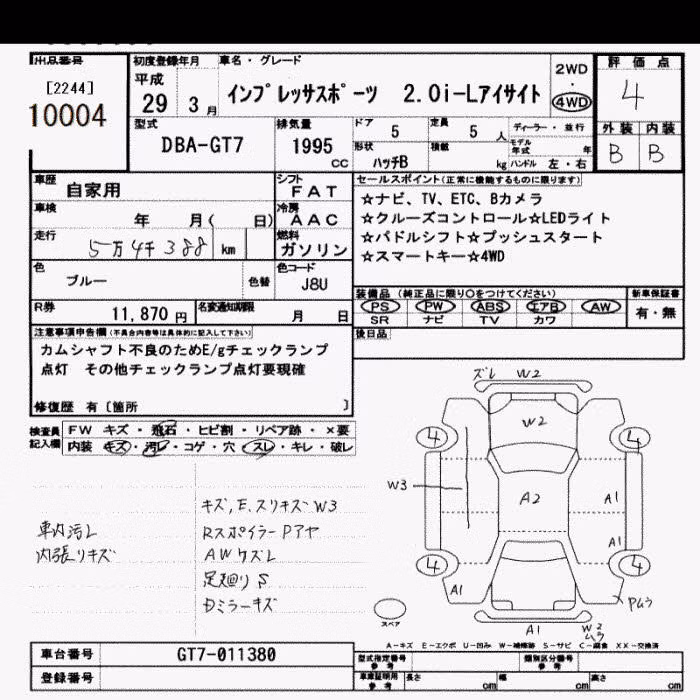 出品番号
[2244]
10004
初度登録年月
平成
29 3 月
車名・グレード
インプレッサスポーツ 2.0i-Lアイサイト
2WD
・
4WD
評価点
4
外装 内装
B B
型式
DBA-GT7
排気量
1995
CC
ドア
5
定員
5 人
ディーラー・並行
形状
ハッチB
積載
kg
モデル年式 年
ハンドル 左・右
車歴
自家用
シフト
FAT
車検
年 月( 日)
冷房
AAC
走行
5万4千388 km
燃料
ガソリン
色
ブルー
色替
色コード
J8U
R券
11,870 円
名変通知期限
月 日
セールスポイント(正常に機能するものに限ります)
☆ナビ、TV、ETC、Bカメラ
☆クルーズコントロール☆LEDライト
☆パドルシフト☆プッシュスタート
☆スマートキー☆4WD
装備品(純正品に限り○をつけてください)
PS PW ABS エアB AW
SR ナビ TV カワ
新車保証書
有・無
後日品
注意事項申告欄(不具合内容等は具体的に記入して下さい)
カムシャフト不良のためE/gチェックランプ
点灯 その他チェックランプ点灯要現確
修復歴 有〔箇所 〕
検査員
記入欄
FW キズ・飛石・ヒビ割・リペア跡・×要
内装 キズ・汚レ・コゲ・穴・スレ・キレ・破レ
キズ,E.スリキズW3
車内汚レ
RスポイラーPアヤ
内張りキズ
AWケズレ
足廻りS
Dミラーキズ
ズレ W2
W2
4 4
W3
A2
A1
A1
4 4
A1
Pムラ
A1
W2
ムラ
スペア
A-キズ E-エクボ U-凹み W-補修跡 S-サビ C-腐食 XX-交換済
車台番号
GT7-011380
登録番号
型式指定番号
参考
類別区分番号
参考
車庫証明用
参考
長さ cm
幅 cm
高さ cm